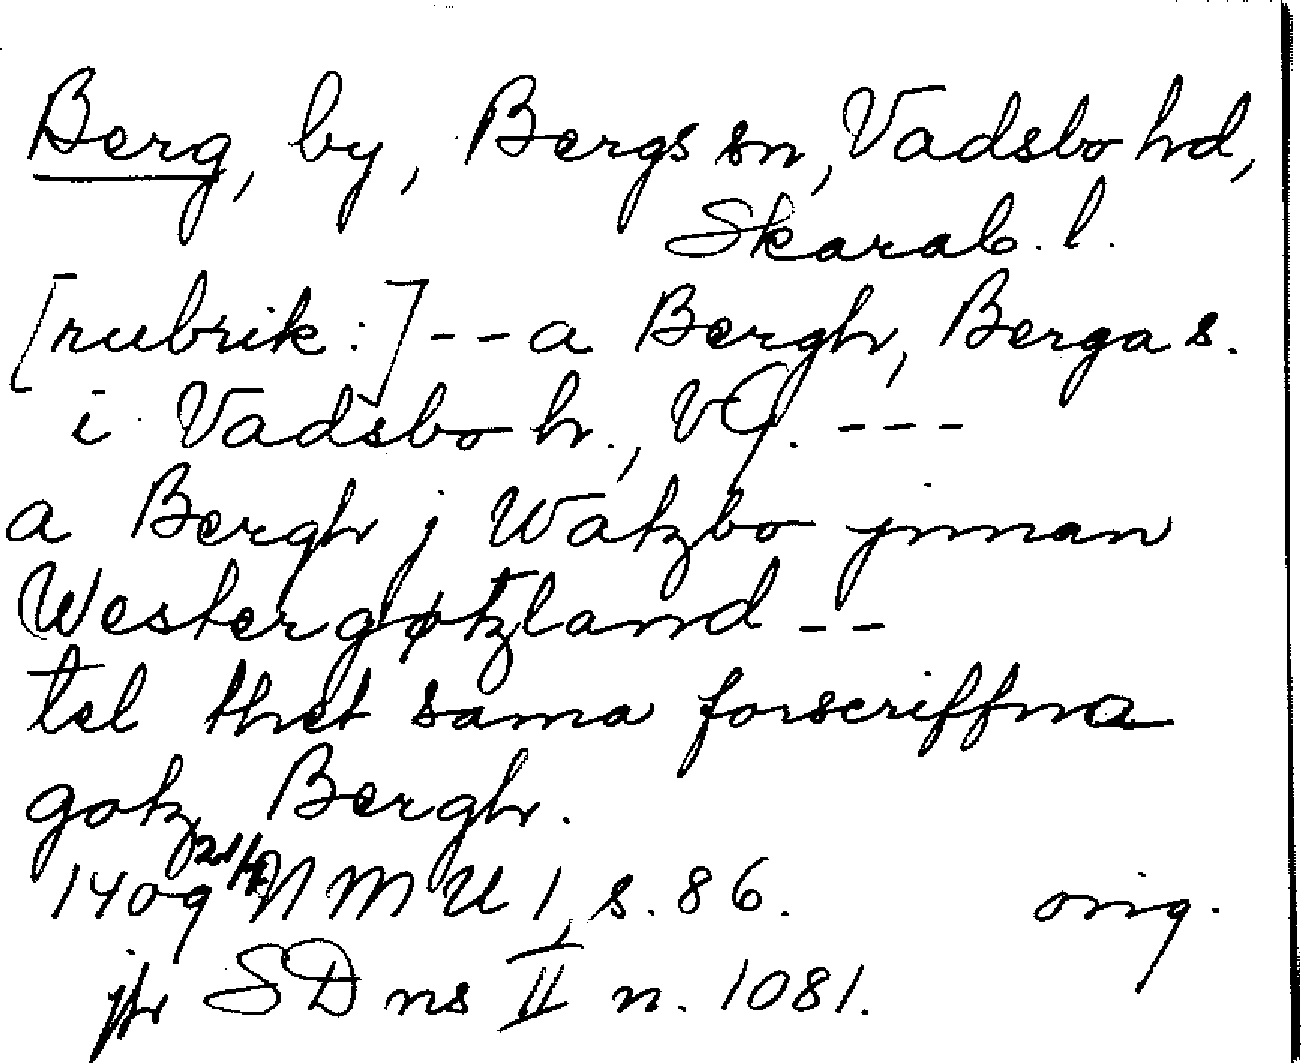 Berg, by, Bergs sn, Vadsbo hd,
Skarab. l.
[rubrik:] -- a Bergh, Berga s.
i Vadsbo h., VG. ---
a Bergh j Watzbo jnnan
Westergøtzland --
tel thet sama forscriffna
gotz Bergh.
1409 NMU 1, s. 86. orig.
jfr SD ns II n. 1081.